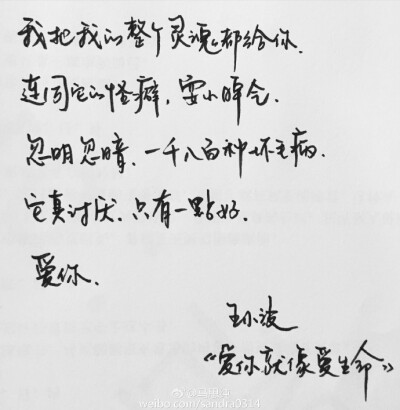 我把我的整个灵魂都给你.
连同它的怪癖,耍小脾气.
忽明忽暗.一千八百种坏毛病.
它真讨厌.只有一點好.
爱你.
王小波
《爱你就像爱生命》
weibo.com/sandra0314